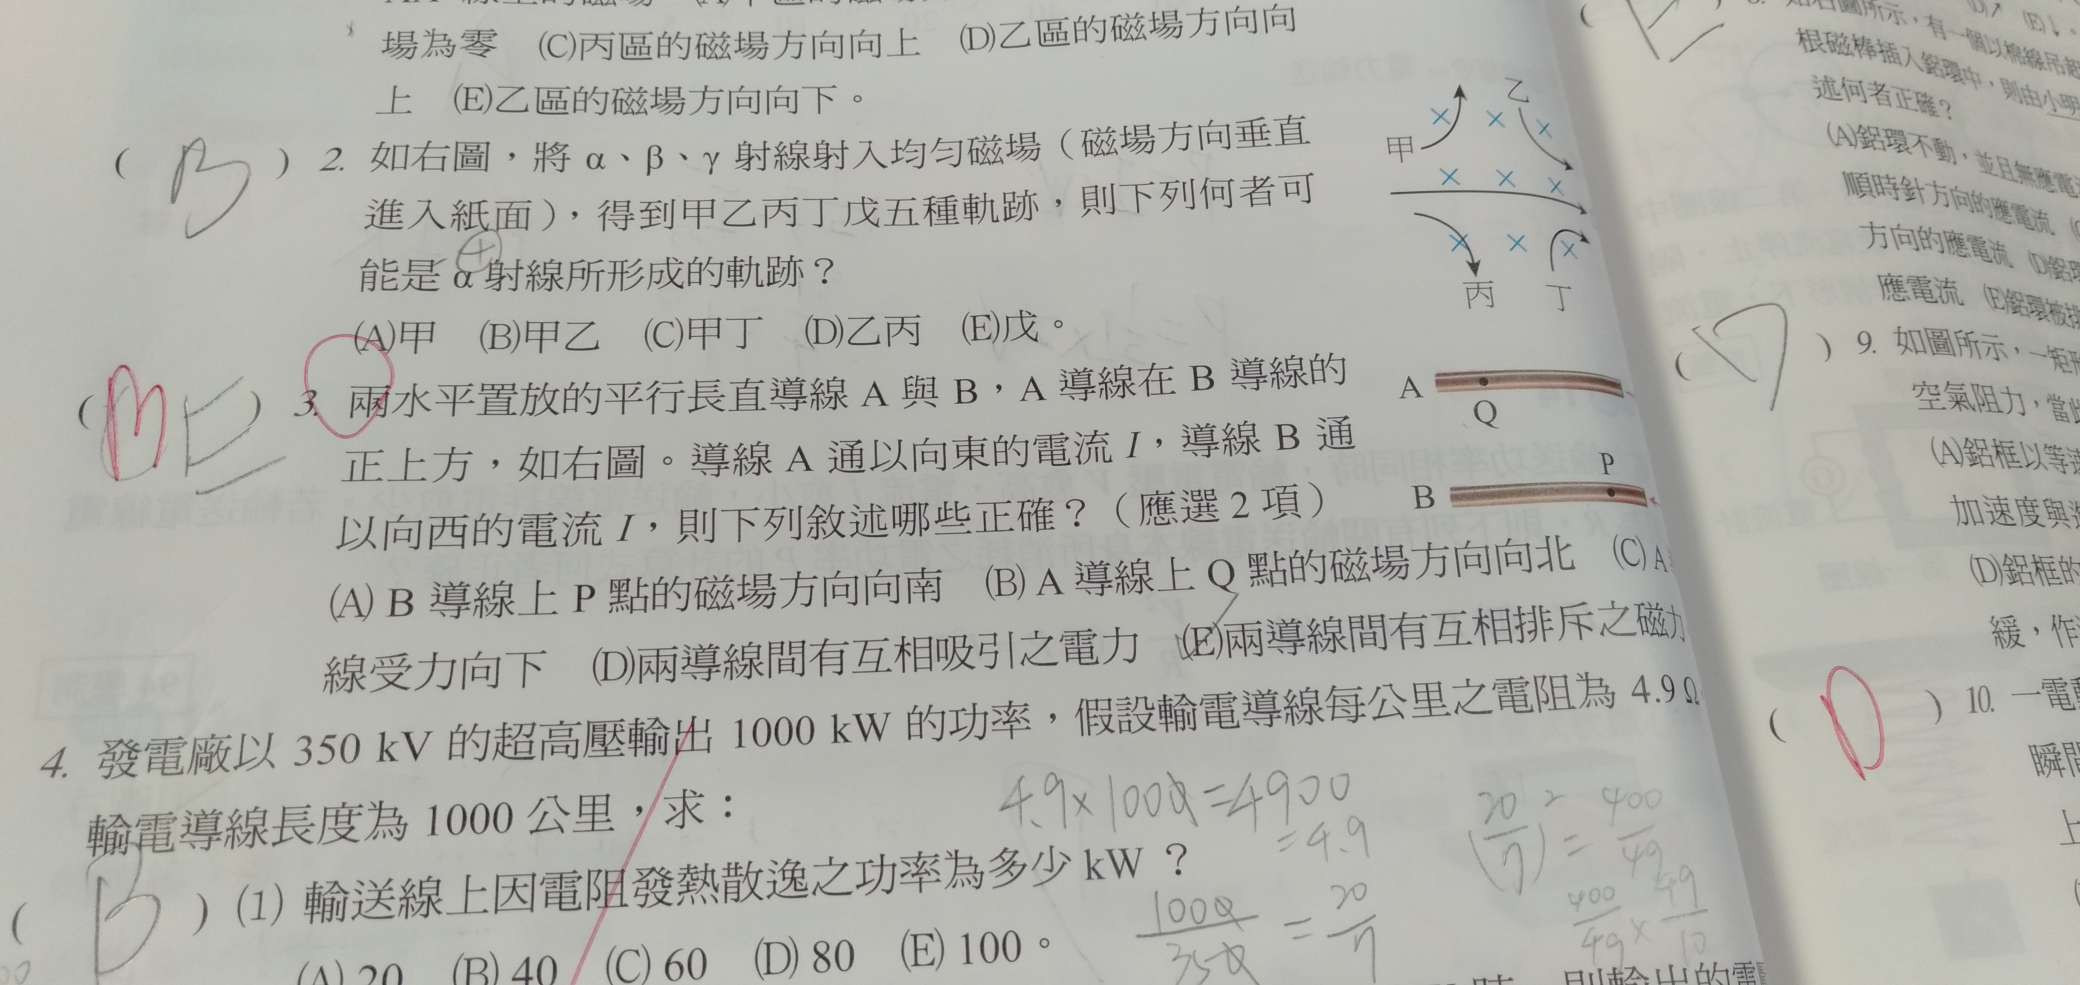 場為零 (C)丙區的磁場方向向上 (D)乙區的磁場方向向
上 (E)乙區的磁場方向向下。
( B ) 2. 如右圖，將 α、β、γ 射線射入均勻磁場（磁場方向垂直
進入紙面），得到甲乙丙丁戊五種軌跡，則下列何者可
能是 α 射線所形成的軌跡？
+
(A)甲 (B)甲乙 (C)甲丁 (D)乙丙 (E)戊。
甲
乙
丙
丁
( E ) 3. 兩水平置放的平行長直導線 A 與 B，A 導線在 B 導線的
正上方，如右圖。導線 A 通以向東的電流 I，導線 B 通
以向西的電流 I，則下列敘述哪些正確？（應選 2 項）
(A) B 導線上 P 點的磁場方向向南 (B) A 導線上 Q 點的磁場方向向北 (C) A
線受力向下 (D)兩導線間有互相吸引之電力 (E)兩導線間有互相排斥之磁力
A
Q
P
B
4. 發電廠以 350 kV 的超高壓輸出 1000 kW 的功率，假設輸電導線每公里之電阻為 4.9Ω
輸電導線長度為 1000 公里，求：
4.9×1000=4900
=4.9
( B ) (1) 輸送線上因電阻發熱散逸之功率為多少 kW ？
(A) 20 (B) 40 (C) 60 (D) 80 (E) 100。
1000/350 = 20/7
(20/7)² = 400/49
400/49 × 49/10
根磁棒插入鋁環中，則由小明
述何者正確？
(A)鋁環不動，並且無應電
順時針方向的應電流
方向的應電流 (D)鋁環
應電流 (E)鋁環被排
( ) 9. 如圖所示，一矩形
空氣阻力，當此
(A)鋁框以等速
加速度與
(D)鋁框的
緩，作
( D ) 10. 一電
瞬間
上